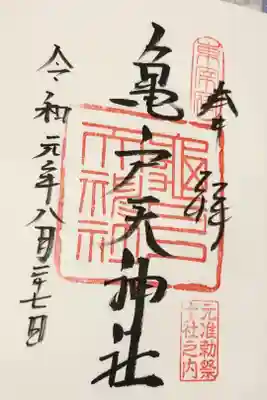 東宰府
奉拝
元准勅祭
十社之内
亀戸天神社
令和元年八月二十七日